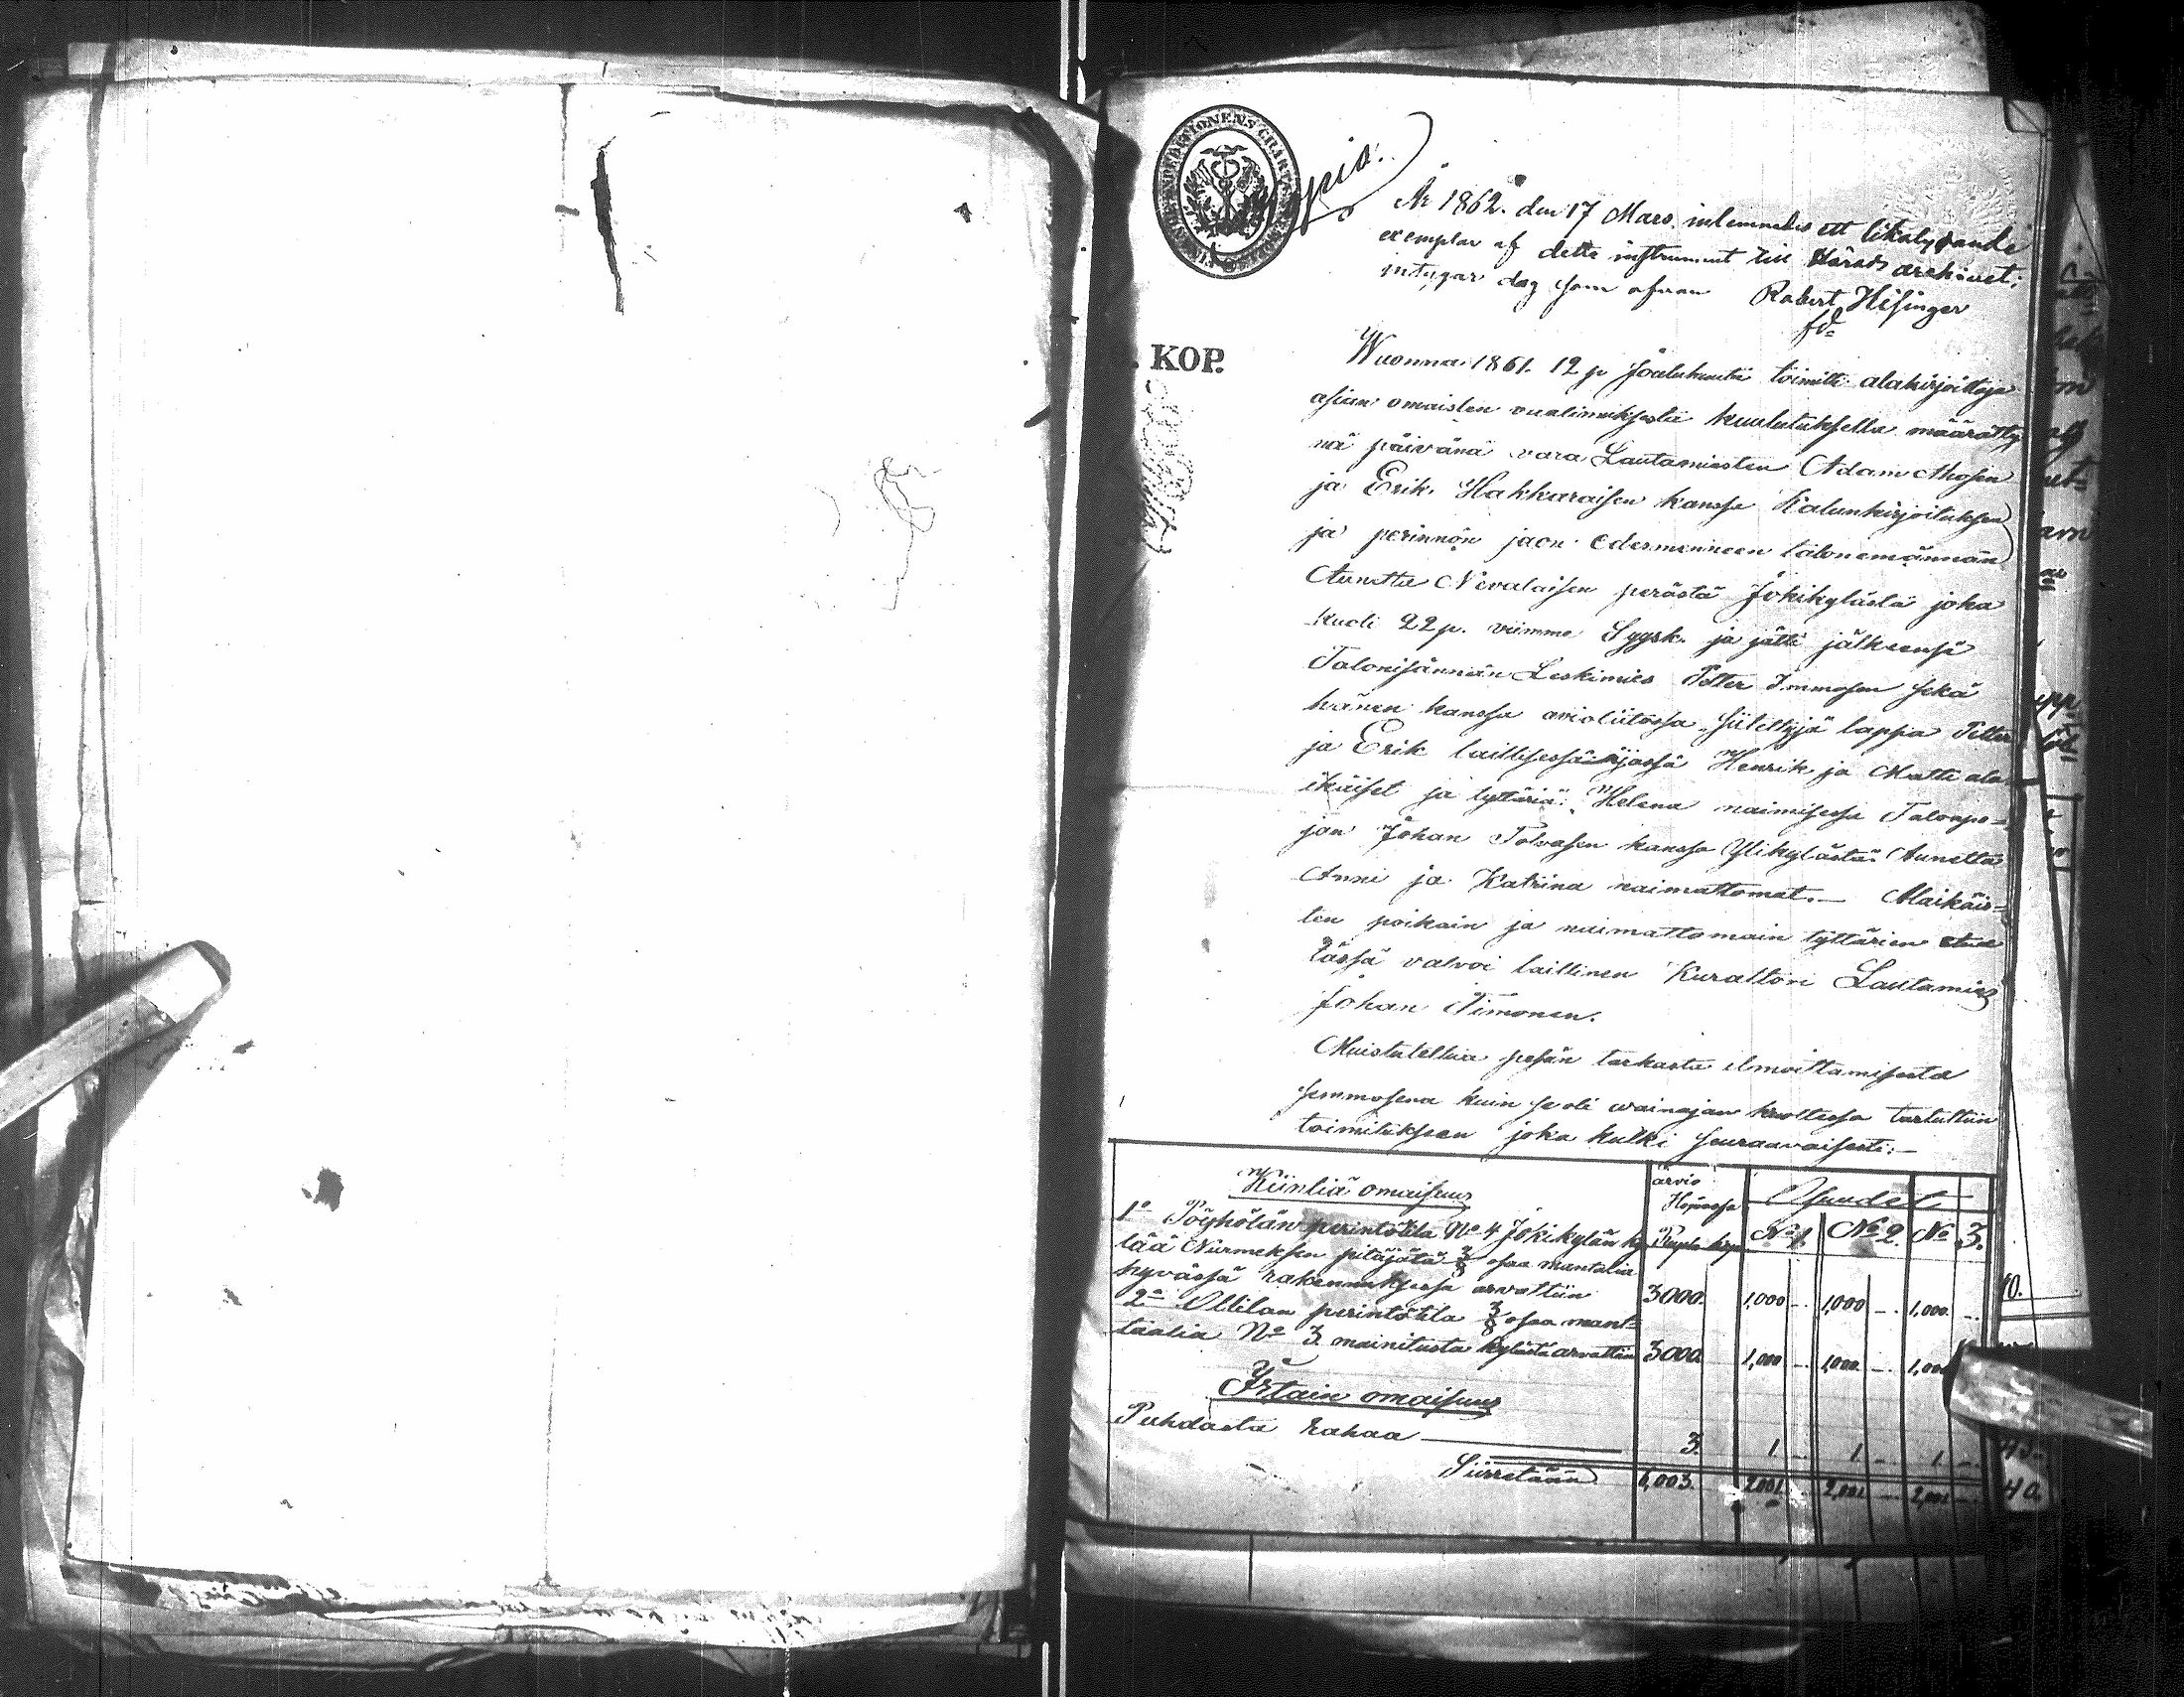 Kopia.
År 1862. den 17 Mars. inlemnades ett likalydande
exemplar af detta instrument till Härads archivet;
intygar dag som ofvan Robert Hisinger
KOP.
Wuonna 1861. 12 p Joulukuuta toimitti alakirjoittaja
asian omaisten vaatimuksesta kuulutuksella määrätty
nä päivänä vara Lautamiesten Adam Ahosen
ja Erik Hakkaraisen kanssa Kalunkirjoituksen
ja perinnön jaon edesmenneen talonemännän
Aunetta Nevalaisen perästä Jokikylästä joka
kuoli 22 p. viimme Syysk. ja jätti jälkeensä
Talonisännän Leskimies Petter Immosen sekä
hänen kanssa avioliitossa siitettyjä lapsia Petter
ja Erik laillisessa ijässä Henrik ja Matti ala
ikäiset ja tyttäriä: Helena naimisessa Talonpo=
jan Johan Tolvasen kanssa Ylikylästä Aunetta
Anni ja Katrina naimattomat.— Alaikäis=
ten poikain ja naimattomain tyttärien etua
tässä valvoi laillinen Kurattori Lautamies
Johan Timonen.
Muistuteltua pesän tarkasta ilmoittamisesta
semmosena kuin se oli wainajan kuollessa tartuttiin
toimitukseen joka kulki seuraavaisesti:—
Kiintiä omaisuus arvio Hopeassa Osuudet
1o Pöyhölän perintötila No 4 Jokikylän ky Rupla kop No 1. No 2. No 3.
lää Nurmeksen pitäjätä 3/8 osaa mantalia
hyvässä rakennuksessa arvattiin 3000. 1,000 — 1,000 — 1,000. —
2o Ollilan perintötila 3/8 osaa mant=
taalia No 3 mainitusta kylästä arvattiin 3000. 1,000 — 1,000. — 1,000
Irtain omaisuus
Puhdasta rahaa — 3. 1. — 1. — 1. —
Siirretään 6,003. 2,001. — 2,001. — 2,001. —